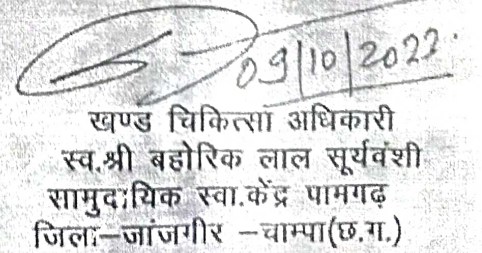 09/10/2022.
खण्ड चिकित्सा अधिकारी
स्व.श्री बहोरिक लाल सूर्यवंशी
सामुदायिक स्वा.केंद्र पामगढ़
जिला-जांजगीर -चाम्पा(छ.ग.)